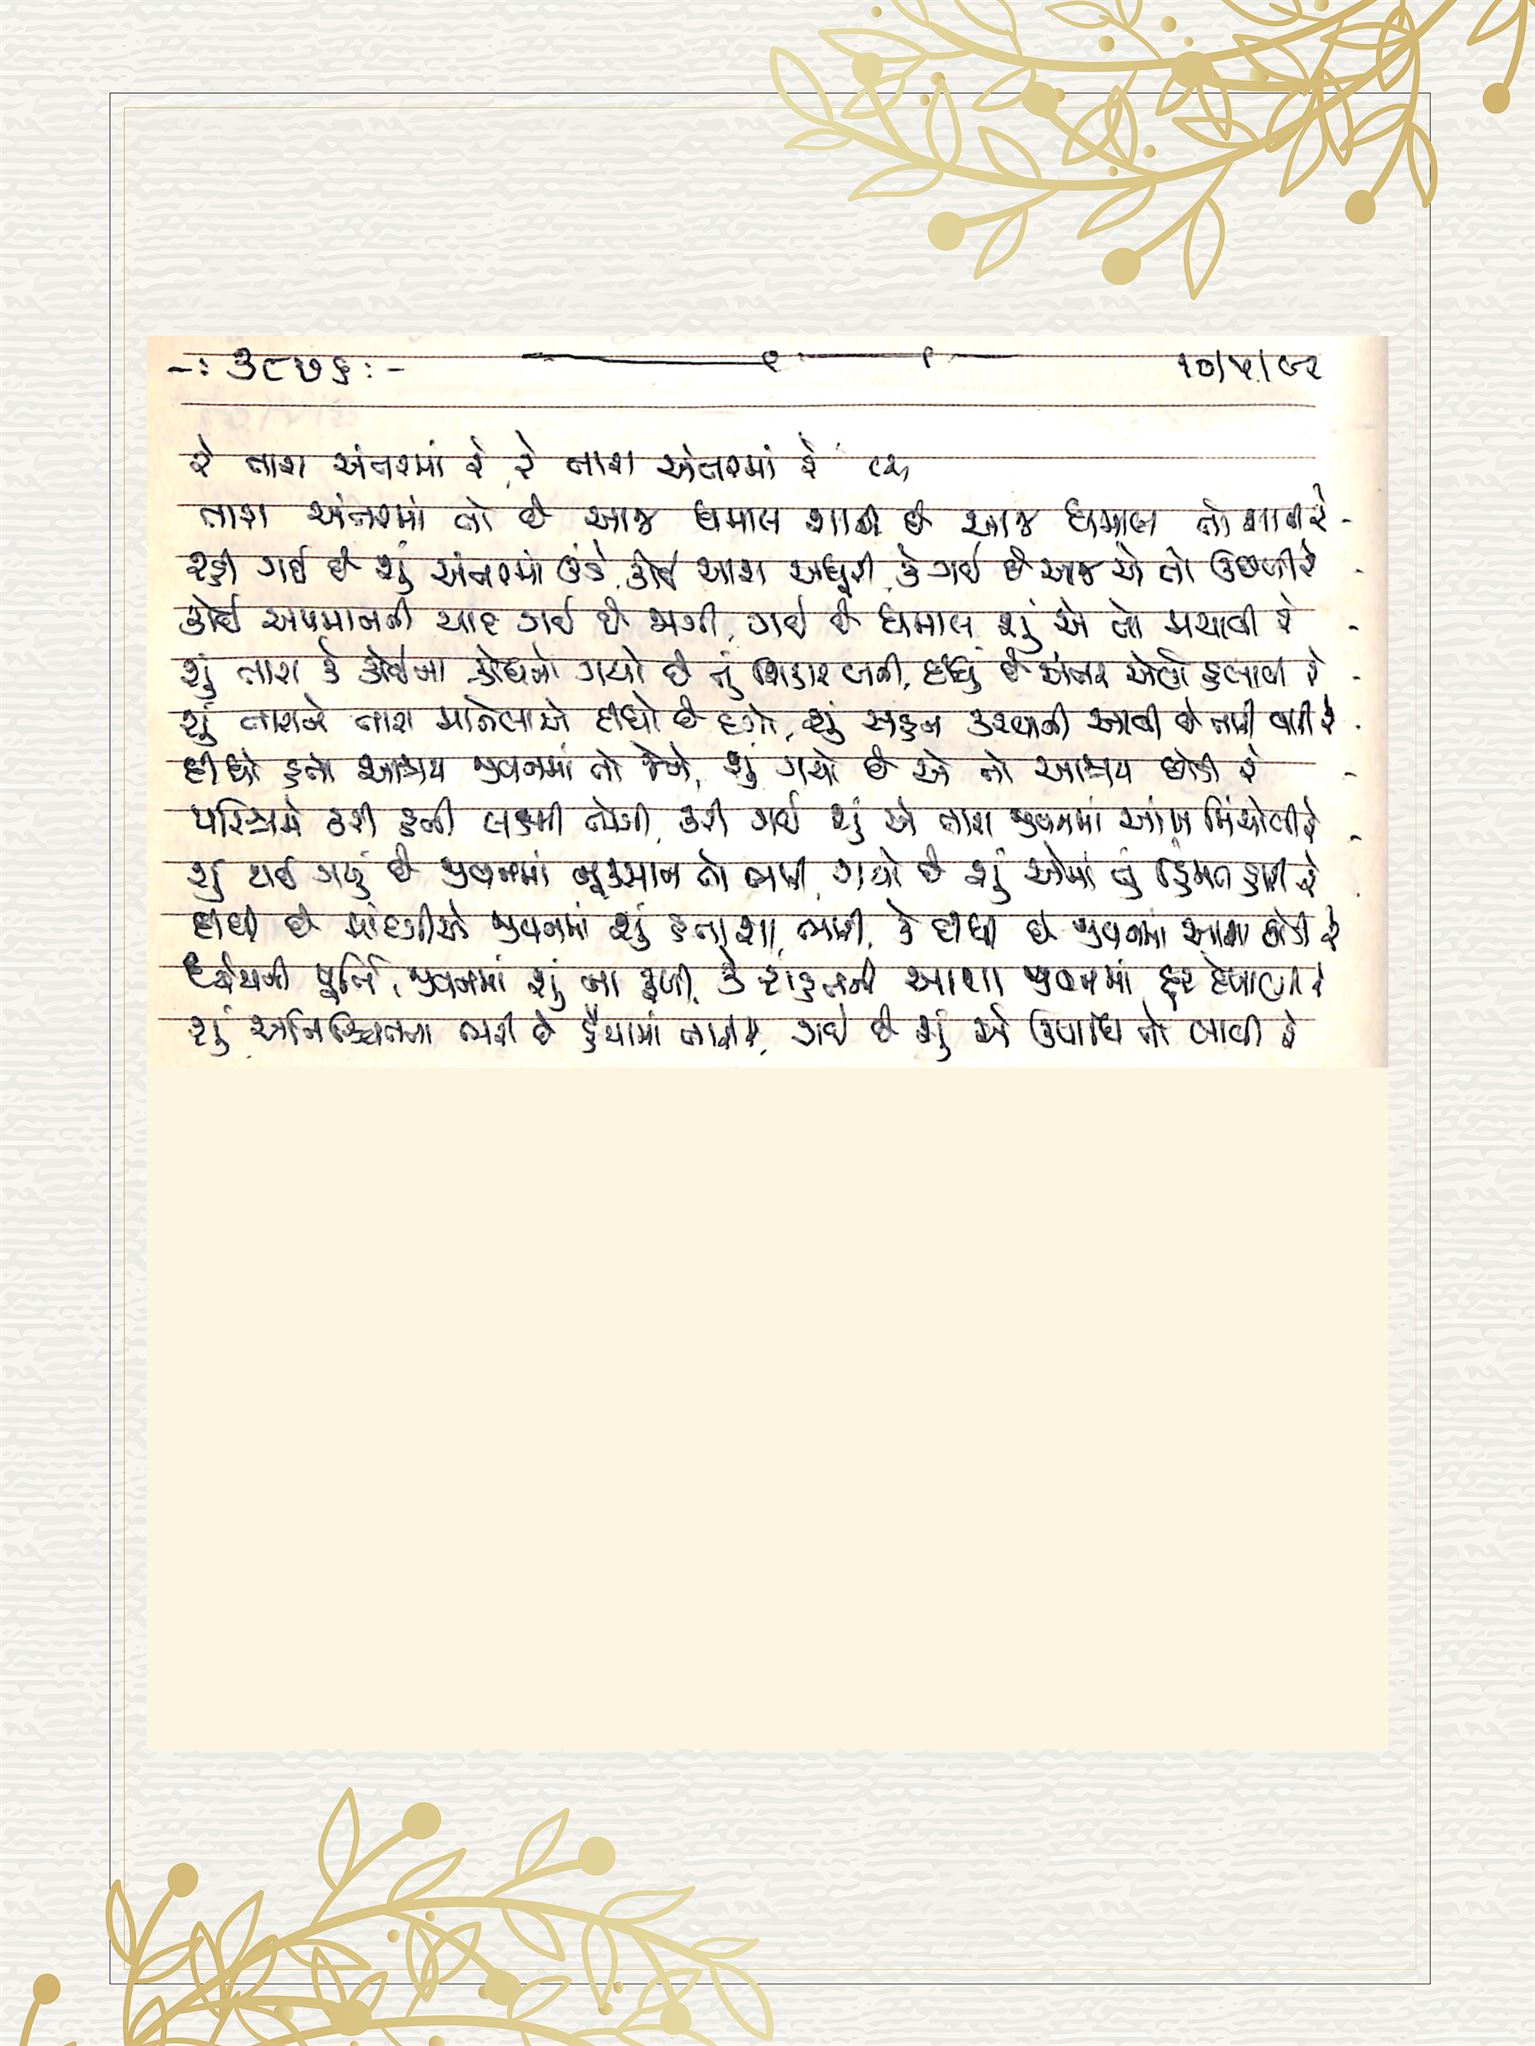 -: ૩૮૭૬ :- ૧૦/૫/૯૨
રે તારા અંતરમાં રે, રે તારા અંતરમાં રે (૨)
તારા અંતરમાં તો છે આજ ધમાલ શાની છે આજ ધમાલ તો શાની રે -
રહી ગઈ છે શું અંતરમાં ઉંડે, કોઈ આશા અધૂરી, કે ગઈ છે આજ એ તો ઉછળી રે -
કોઈ અપમાનની યાદ ગઈ છે જાગી, ગઈ છે ધમાલ શું એ તો મચાવી રે -
શું તારા કે કોઈના ક્રોધનો ગયો છે તું શિકાર બની, દીધું છે અંતર એણે હલાવી રે -
શું તારાને તારા માનેલાએ દીધો છે દગો, શું સહન કરવાની આવી છે તારી વારી રે -
દીધો હતો આશ્રય જીવનમાં તો જેને, શું ગયો છે એ તો આશ્રય છોડી રે -
પરિશ્રમે કરી હતી લક્ષ્મી ભેગી, કરી ગઈ શું એ તારા જીવનમાં આંખ મિંચોલી રે -
શું થઈ ગયું છે જીવનમાં નુકસાન તો ભારી, ગયો છે શું એમાં તું હિંમત હારી રે -
દીધી છે માંદગીએ જીવનમાં શું હતાશા ભારી, કે દીધી છે જીવનમાં આશા છોડી રે
ધ્યેયની પૂર્તિ, જીવનમાં શું ના ફળી, કે રાહતની આશા જીવનમાં દૂર દેખાણી રે
શું અનિશ્ચિતતા ભરી છે હૈયામાં તારા, ગઈ છે શું એ ઉપાધિ તો લાવી રે